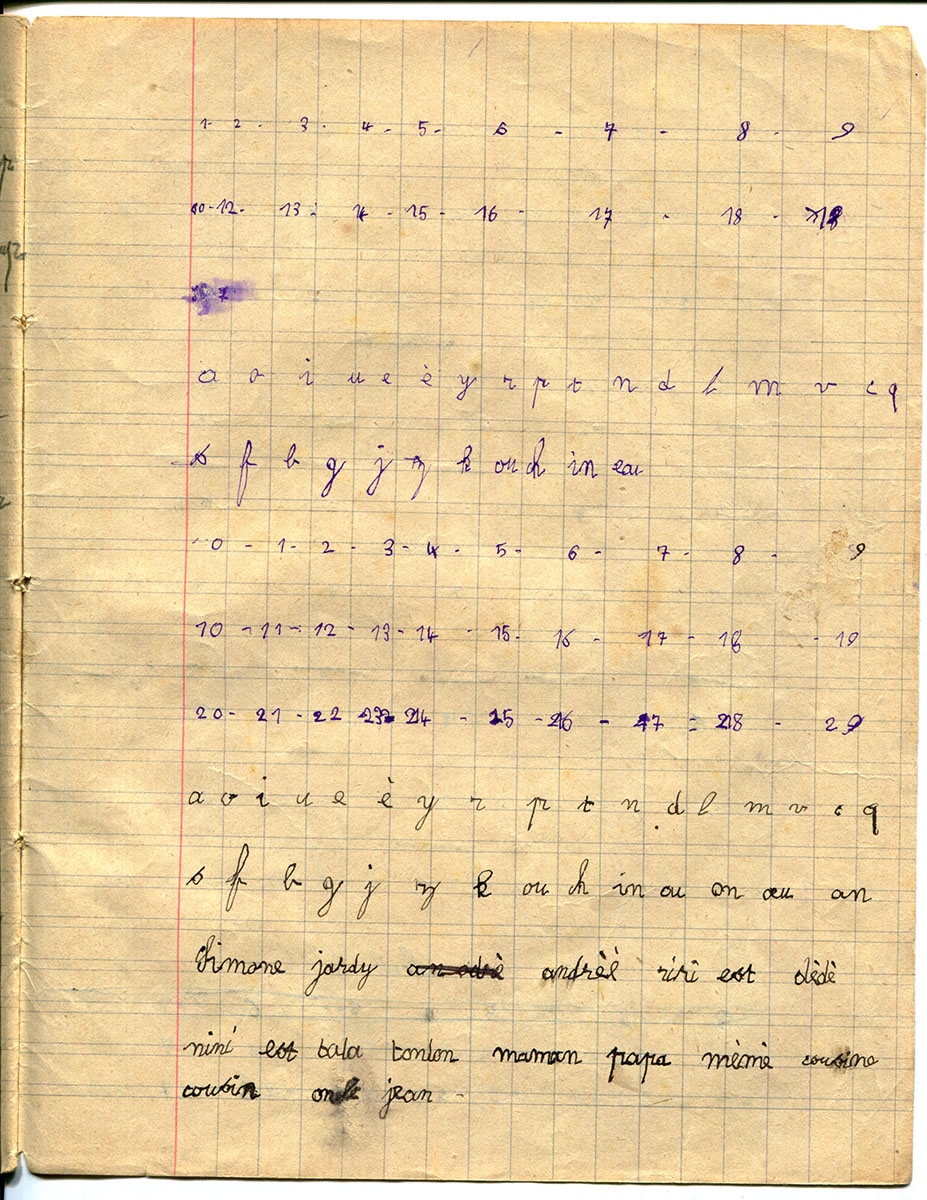 1 - 2 - 3 - 4 - 5 - 6 - 7 - 8 - 9
10 - 12 - 13 - 14 - 15 - 16 - 17 - 18 -
a o i u e è y r p t n d l m v c q
s f b g j z k ou ch in eau
0 - 1 - 2 - 3 - 4 - 5 - 6 - 7 - 8 - 9
10 - 11 - 12 - 13 - 14 - 15 - 16 - 17 - 18 - 19
20 - 21 - 22 23 - 24 - 25 - 26 - 27 - 28 - 29
a o i u e è y r p t n d l m v c q
s f b g j z k ou ch in ou on au an
Simone jardy andrèè riri est dèdè
nini est tata tonton maman papa mèmè cousine
cousin oncle jean -